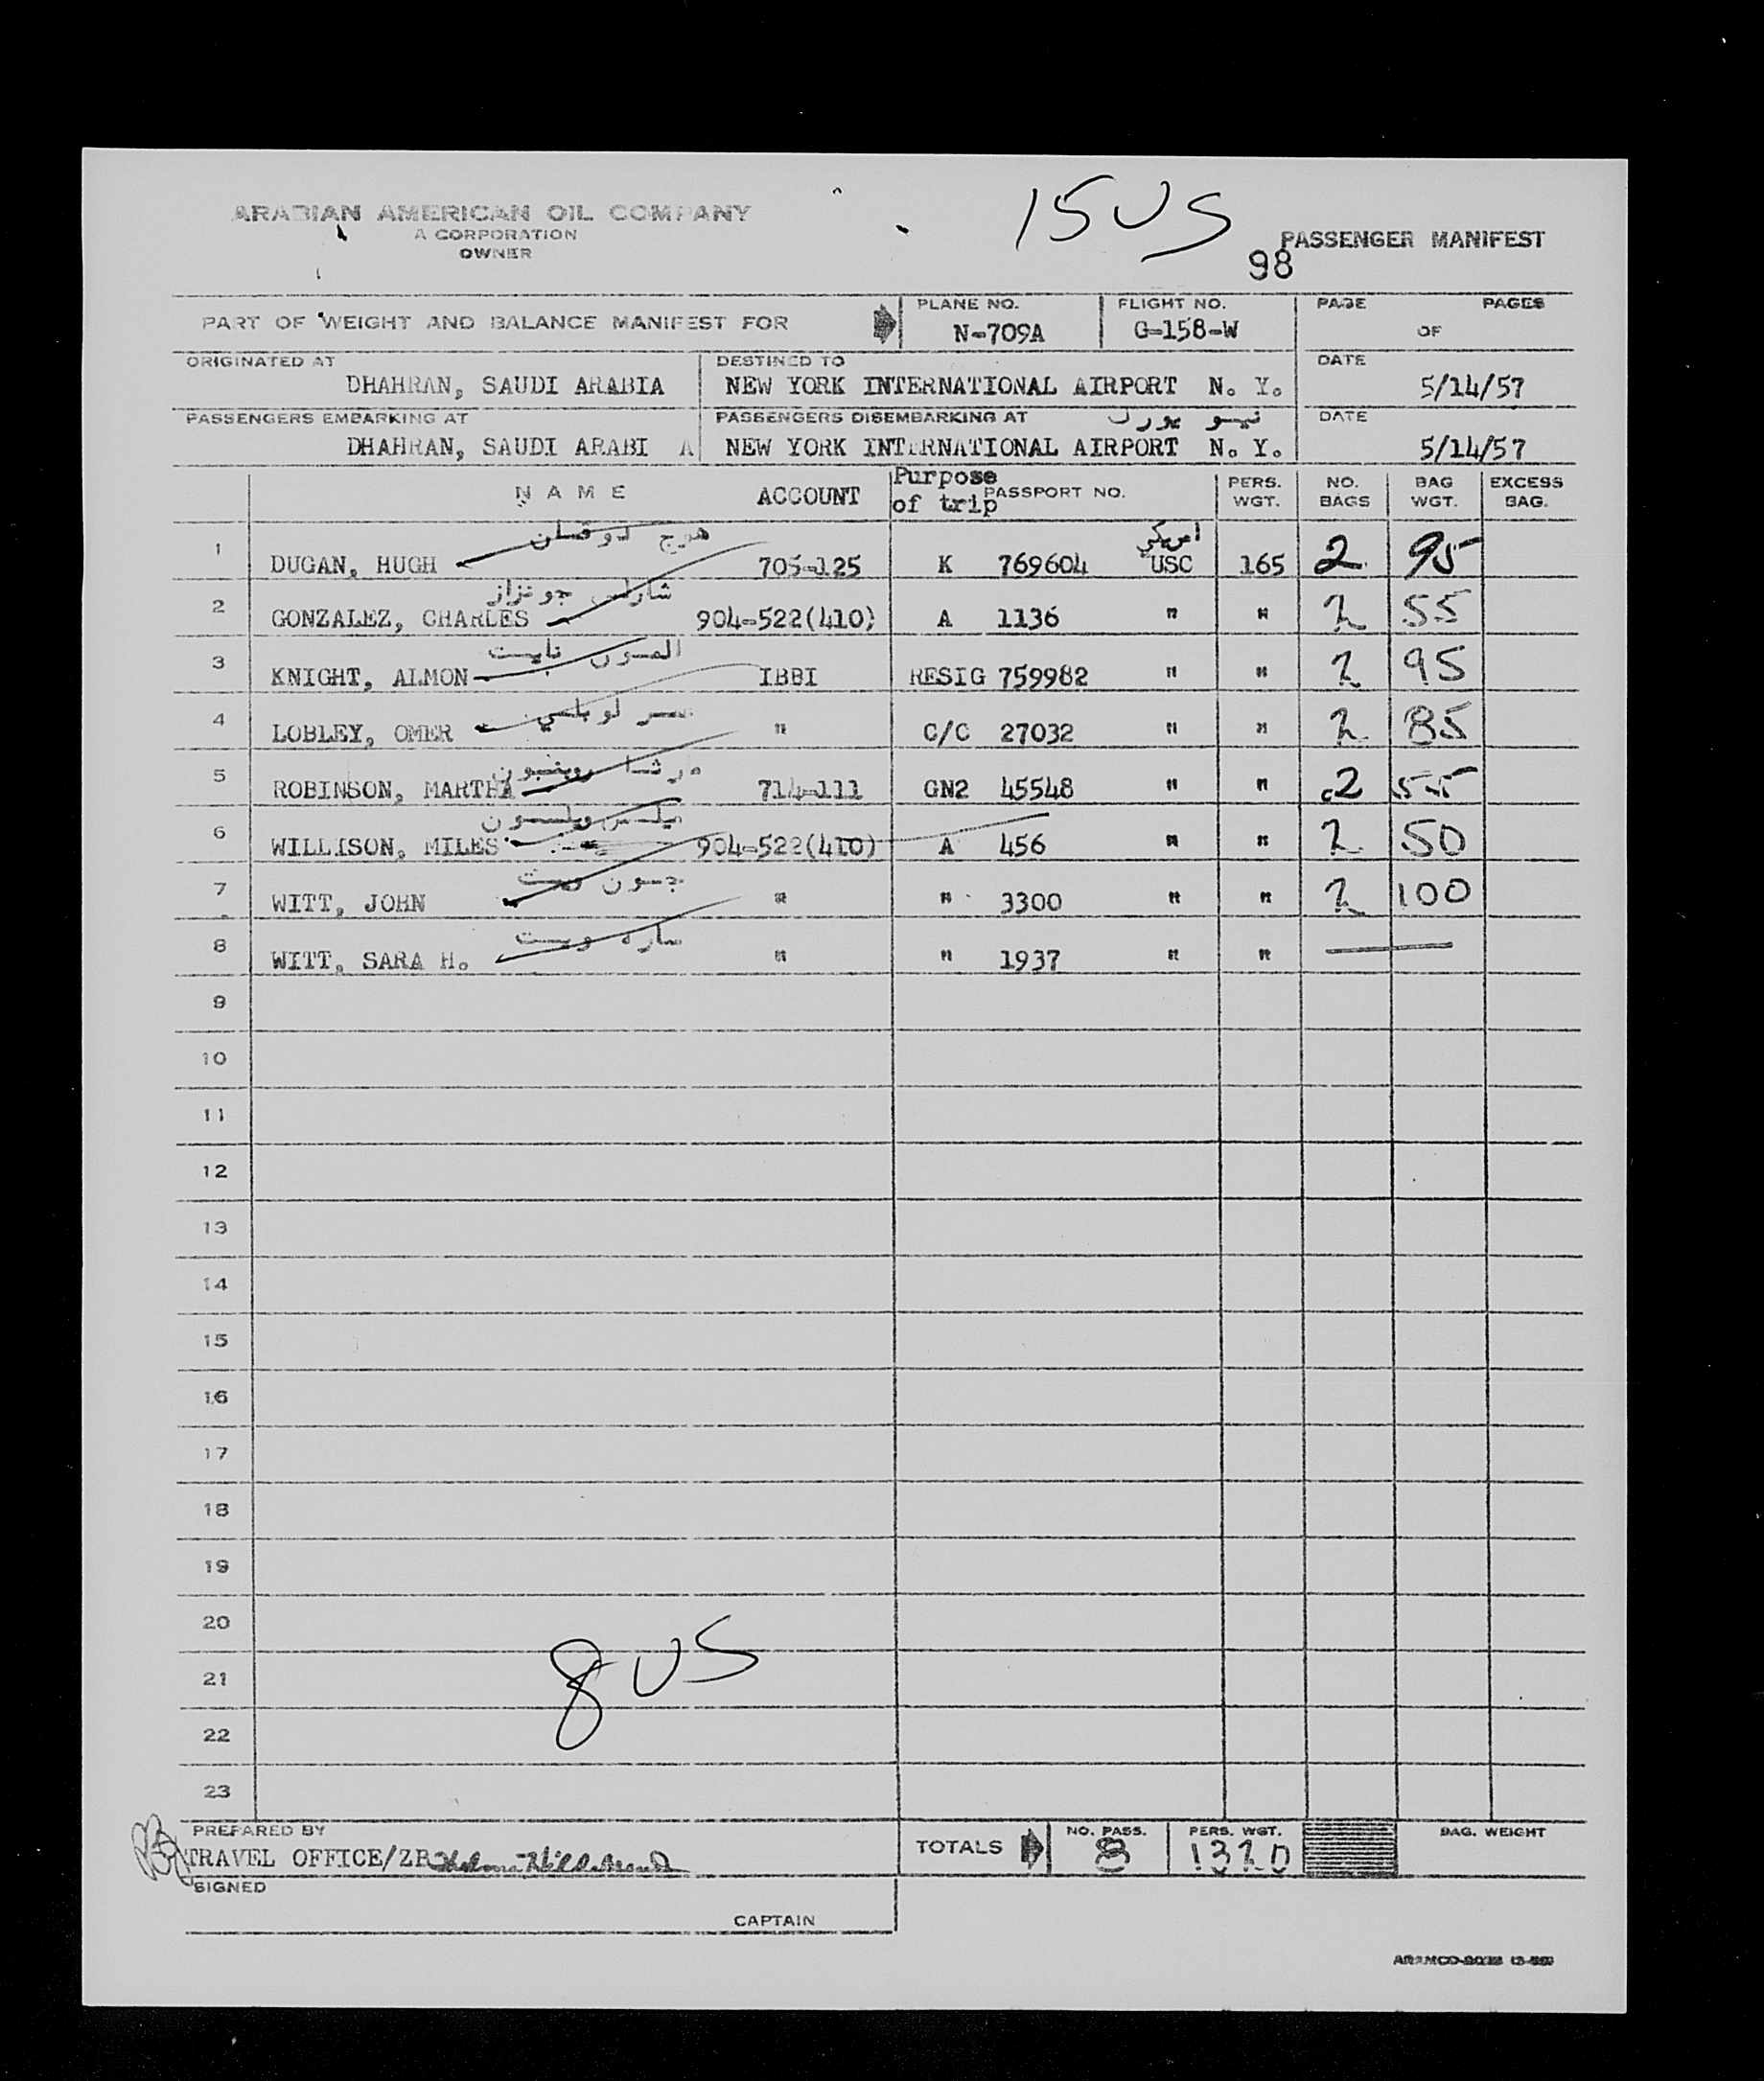 ARABIAN AMERICAN OIL COMPANY
A CORPORATION
OWNER
15 US
98
PASSENGER MANIFEST
PART OF WEIGHT AND BALANCE MANIFEST FOR
PLANE NO. N-709A
FLIGHT NO. G-158-W
PAGE OF PAGES
ORIGINATED AT DHAHRAN, SAUDI ARABIA
DESTINED TO NEW YORK INTERNATIONAL AIRPORT N. Y.
DATE 5/14/57
PASSENGERS EMBARKING AT DHAHRAN, SAUDI ARABI A
PASSENGERS DISEMBARKING AT نيو يورك NEW YORK INTERNATIONAL AIRPORT N. Y.
DATE 5/14/57
NAME ACCOUNT Purpose of trip PASSPORT NO. PERS. WGT. NO. BAGS BAG WGT. EXCESS BAG.
هوج دوقان امريكي
1 DUGAN, HUGH 705-125 K 769604 USC 165 2 95
شارلس جونزاز
2 GONZALEZ, CHARLES 904-522(410) A 1136 " " 2 55
المون نايت
3 KNIGHT, ALMON IBBI RESIG 759982 " " 2 95
لوبلي
4 LOBLEY, OMER " C/C 27032 " " 2 85
مرثا روبنسون
5 ROBINSON, MARTHA 714-111 GN2 45548 " " 2 55
ميلس ويلسون
6 WILLISON, MILES 904-522(410) A 456 " " 2 50
جون ويت
7 WITT, JOHN " " 3300 " " 2 100
ساره ويت
8 WITT, SARA H. " " 1937 " " —
9
10
11
12
13
14
15
16
17
18
19
20
21
22
23
8 US
PREPARED BY
TRAVEL OFFICE/ZR
TOTALS NO. PASS. 8 PERS. WGT. 1320 BAG. WEIGHT
SIGNED
CAPTAIN